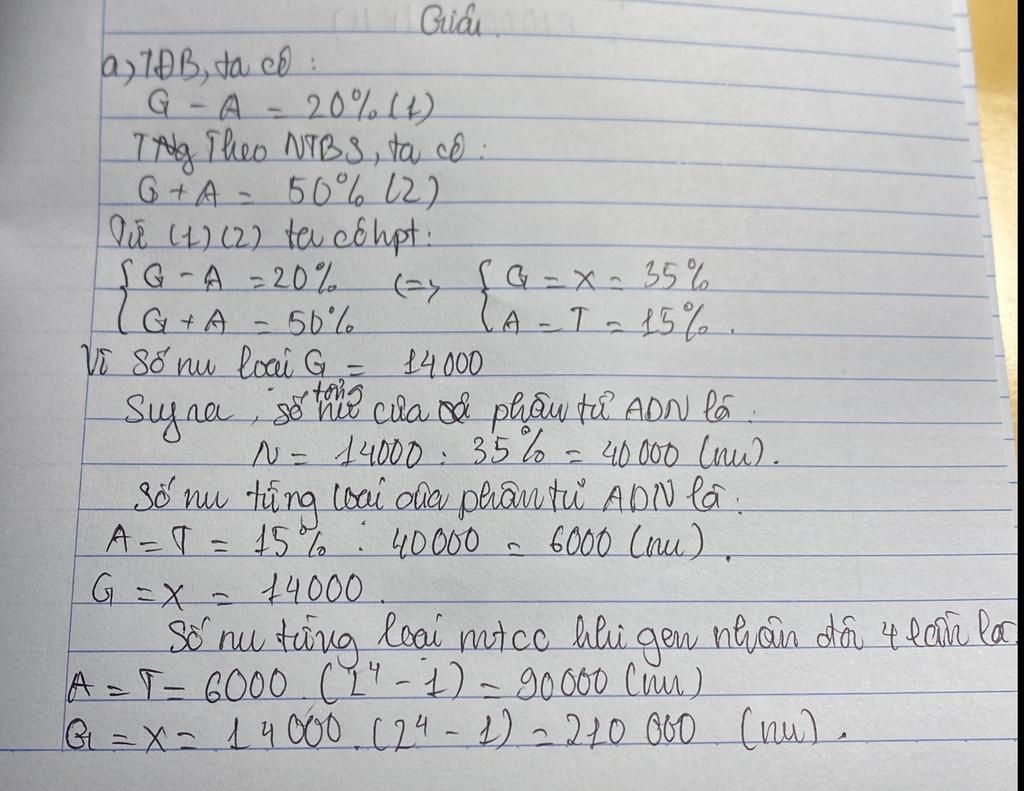 Giải
a, TĐB, ta có :
G - A = 20% (1)
Theo NTBS, ta có :
G + A = 50% (2)
Từ (1) (2) ta có hpt :
{ G - A = 20% <=> { G = X = 35%
{ G + A = 50% { A = T = 15% .
Vì số nu loại G = 14000
Suy ra , số tổng nu của phân tử ADN là :
N = 14000 : 35% = 40 000 (nu) .
Số nu từng loại của phân tử ADN là :
A = T = 15% . 40000 = 6000 (nu) .
G = X = 14000 .
Số nu từng loại mtcc khi gen nhân đôi 4 lần là
A = T = 6000 . (2⁴ - 1) = 90000 (nu)
G = X = 14 000 . (2⁴ - 1) = 210 000 (nu) .